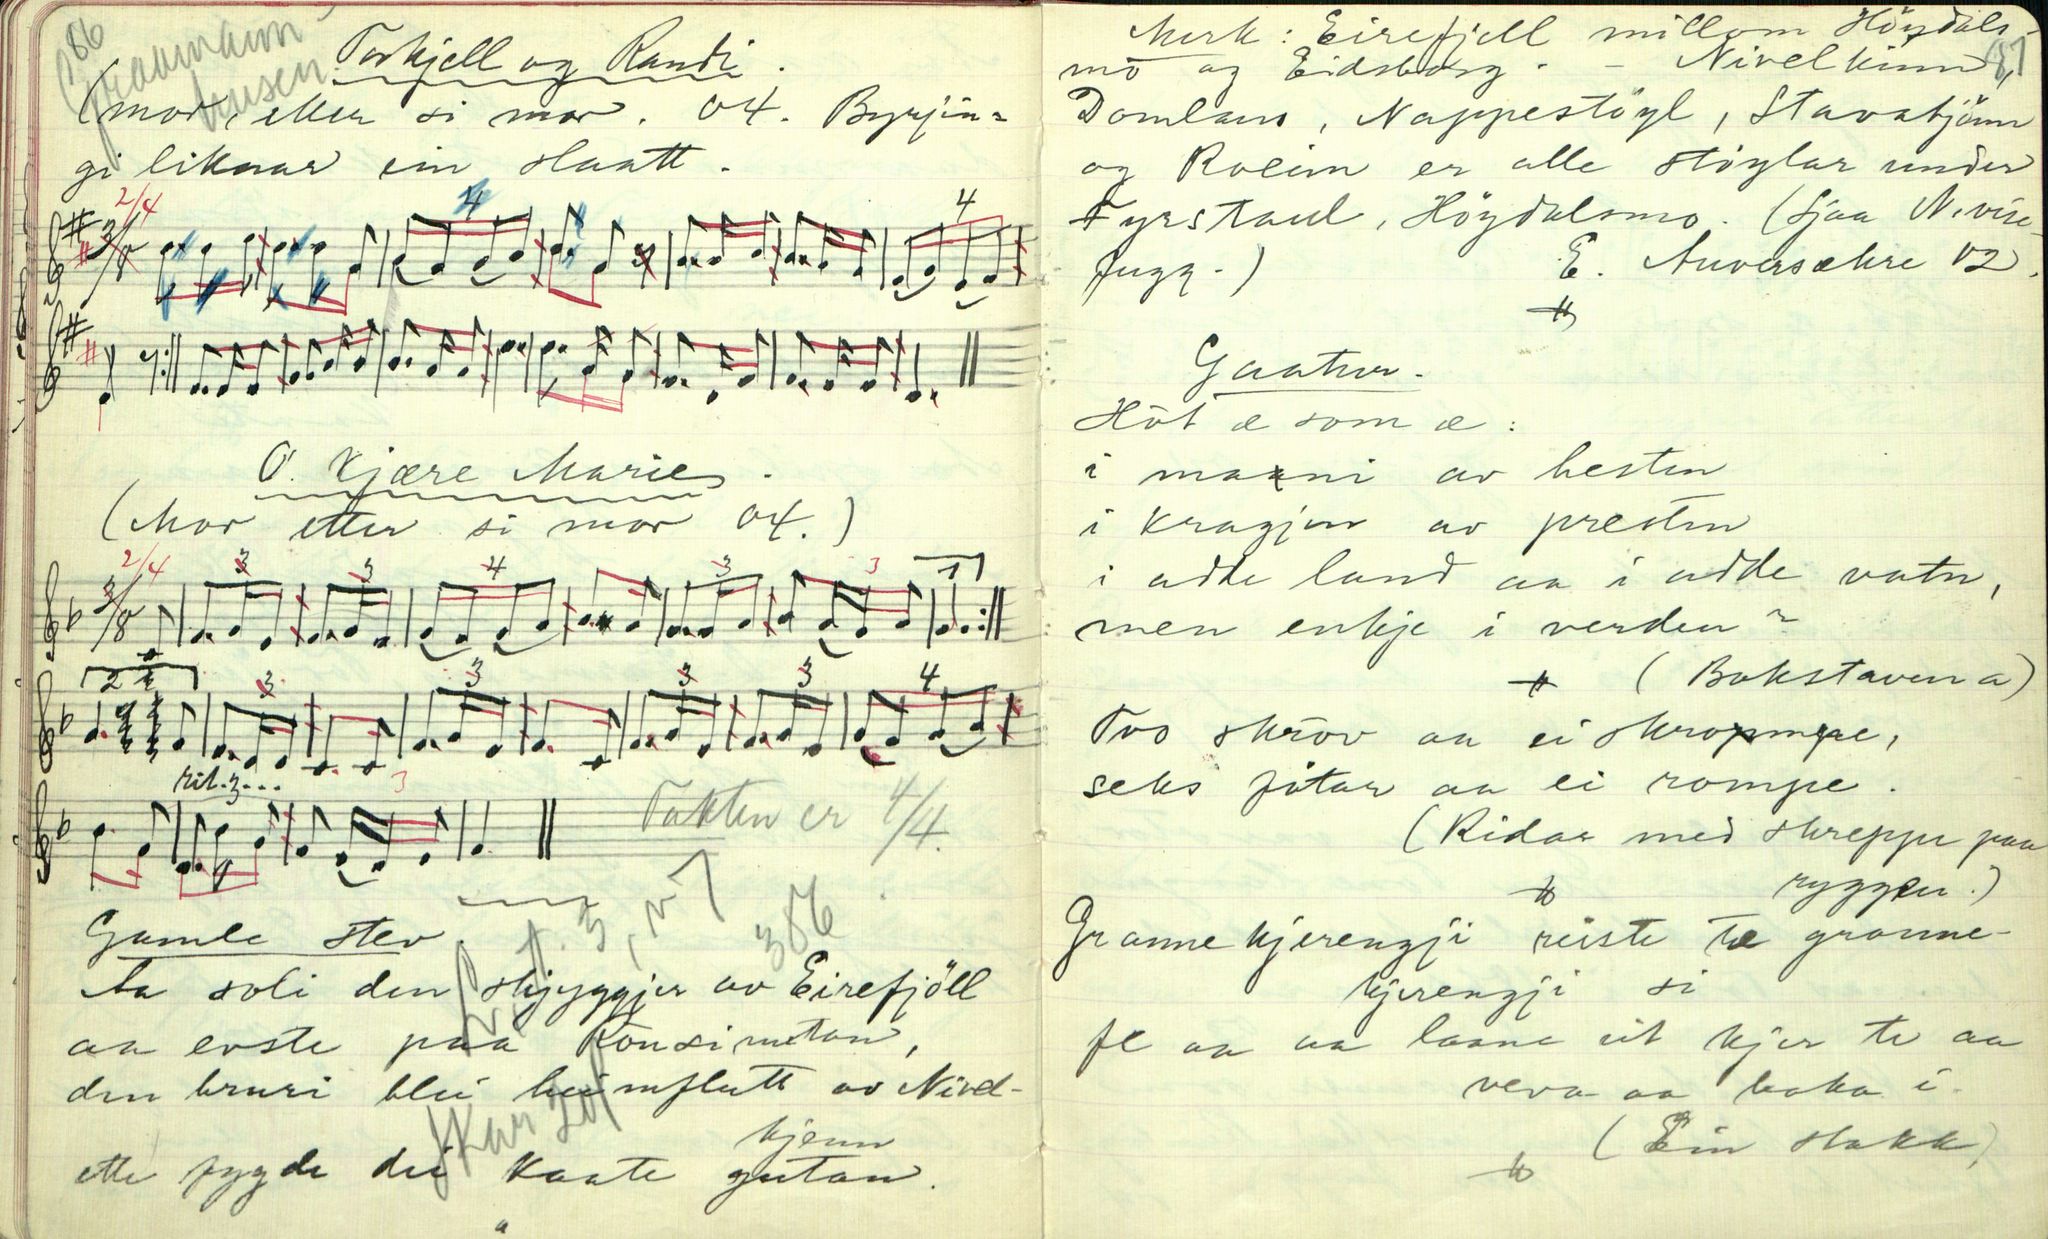 86
Torkjell og Randi.
(mor, etter si mor. 04. Byrjin=
gi liknar ein slaatt.
2/4
3/8
4
4
O kjære Marie.
(Mor etter si mor 04.)
2/4
3/8
3 3 4 3 3 1
2 3 3 3 3 4
rit. 3...
3
Takten er 4/4.
Gamle stev
386
Aa soli den skjyggjer av Eirefjöll
aa evste paa Rönsinutan,
den bruri blei heimflutt av Nivel-
kjenn
ette fygde dei kaate gutan.
Merk: Eirefjell millom Höydals-
mo og Eidsborg. - Nivelkinn,
87
Domlann, Nappestöyl, Stavatjönn
og Roeim er alle stöylar under
Fyrstaul, Höydalsmo. (sjaa N. vise-
fugg.) E. Auversækre 02.
Gaatur.
Höt æ som æ:
i maani av hesten
i kragjen av presten
i adde land aa i adde vatn,
men enkje i verden?
(Bokstaven a)
Tvo skrov aa ei skrompe,
seks fötar aa ei rompe.
(Ridar med skreppe paa
ryggen.)
Grannekjerengji reiste te granne-
kjerengji si
fe aa aa laane eit kjer te aa
vera aa baka i.
(Ein stakk)